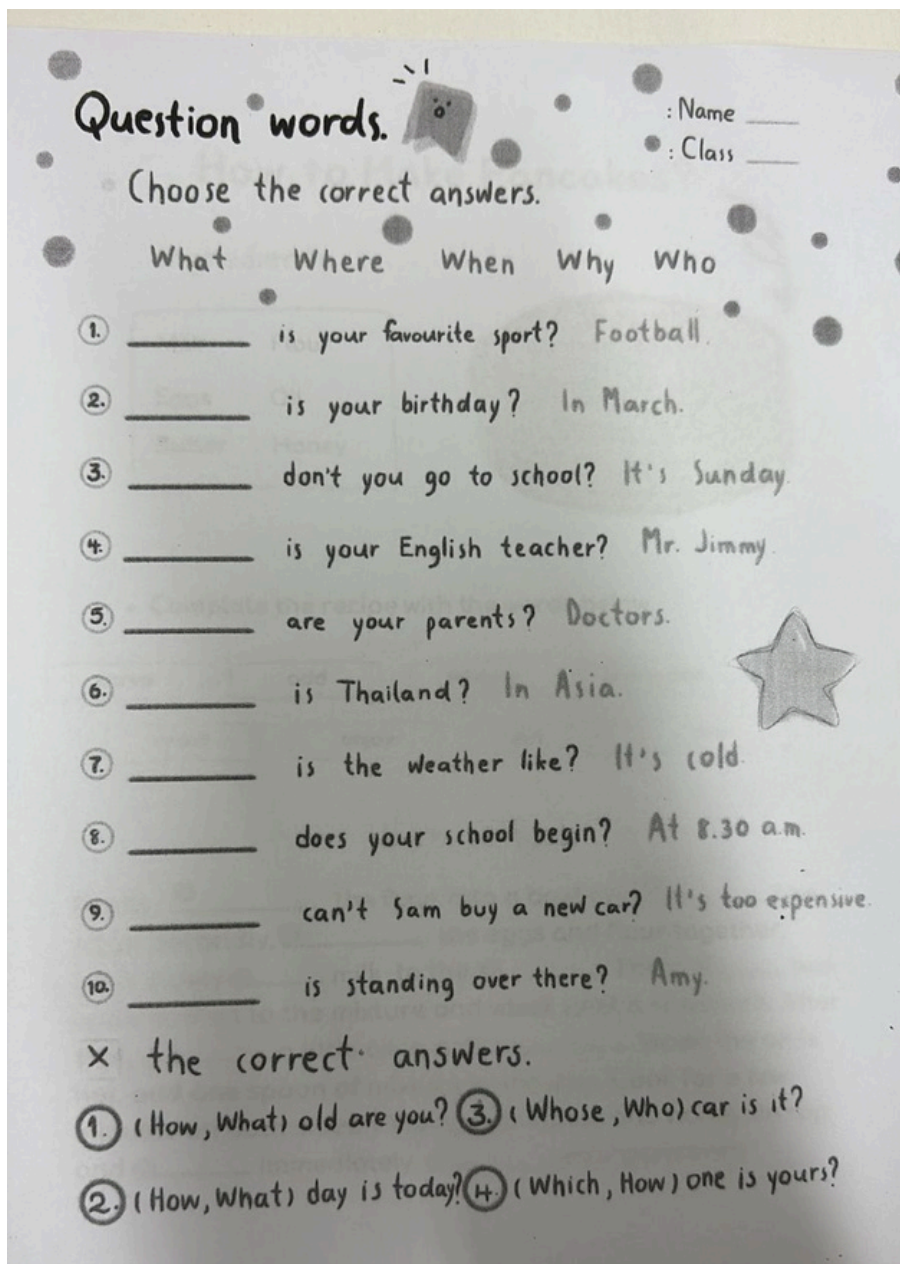 Question words.
: Name ____
: Class ____
Choose the correct answers.
What Where When Why Who
1. ________ is your favourite sport? Football.
2. ________ is your birthday? In March.
3. ________ don't you go to school? It's Sunday.
4. ________ is your English teacher? Mr. Jimmy.
5. ________ are your parents? Doctors.
6. ________ is Thailand? In Asia.
7. ________ is the weather like? It's cold.
8. ________ does your school begin? At 8.30 a.m.
9. ________ can't Sam buy a new car? It's too expensive.
10. ________ is standing over there? Amy.
X the correct answers.
1. (How, What) old are you? 3. (Whose, Who) car is it?
2. (How, What) day is today? 4. (Which, How) one is yours?